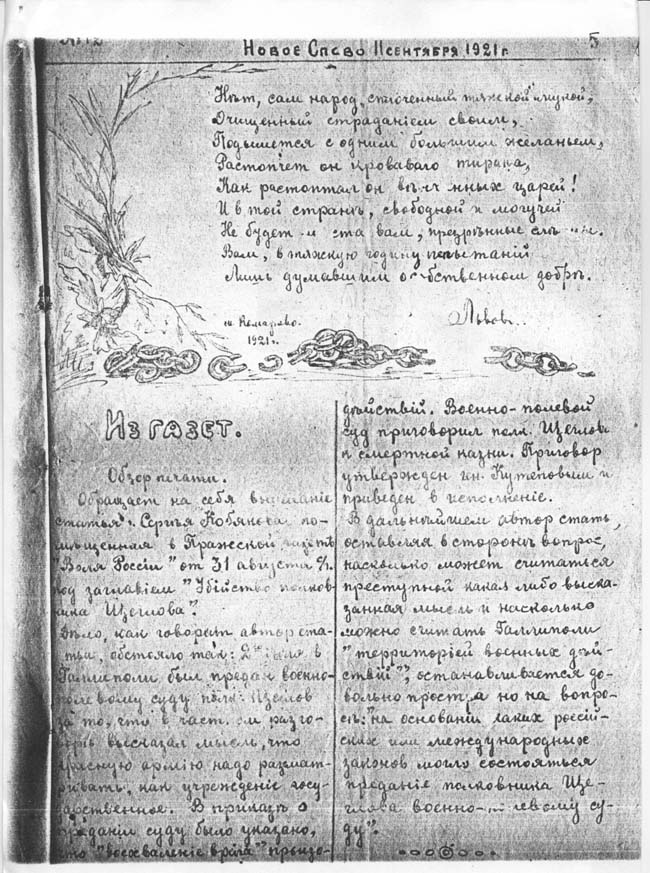 №12
5
Новое Слово 11 сентября 1921 г.
Нѣт, сам народ, сплоченный тяжской мукой,
Очищенный страданіем своим,
Подымется с одним большим желаньем,
Растопчет он кроваваго тирана,
Как растоптал он вѣ нных царей!
И в той странѣ, свободной и могучей
Не будет м ста вам, презрѣнные
Вам, в тяжскую годину испытаній
Лишь думавшим о собственном добрѣ.
Львов.
м. Комарево.
1921 г.
Из газет.
Обзор печати.
Обращает на себя вниманіе
статья Сергѣя Кобякова по-
мѣщенная в Пражской газетѣ
"Воля Россіи" от 31 августа с/г.
под заглавіем "Убійство полков-
ника Щеглова".
Дѣло, как говорит автор ста-
тьи, обстояло так: в
Галлиполи был предан военно-
полевому суду полк. Щеглов
за то, что в част. ом разго-
ворѣ высказал мысль, что
красную армію надо разсмат-
ривать, как учрежденіе госу-
дарственное. В приказѣ о
преданіи суду было указано,
что "восхваленіе врага" произо-
дѣйствій. Военно-полевой
суд приговорил полк. Щеглова
к смертной казни. Приговор
утвержден ген. Кутеповым и
приведен в исполненіе.
В дальнѣйшем автор стать,
оставляя в сторонѣ вопрос,
насколько может считаться
преступной какая либо выска-
занная мысль и насколько
можно считать Галлиполи
"территоріей военных дѣй-
ствій", останавливается до-
вольно простра но на вопро-
сѣ: "на основаніи каких россій-
ских или международных
законов могло состояться
преданіе полковника Ще-
глова военно- левому су-
ду".